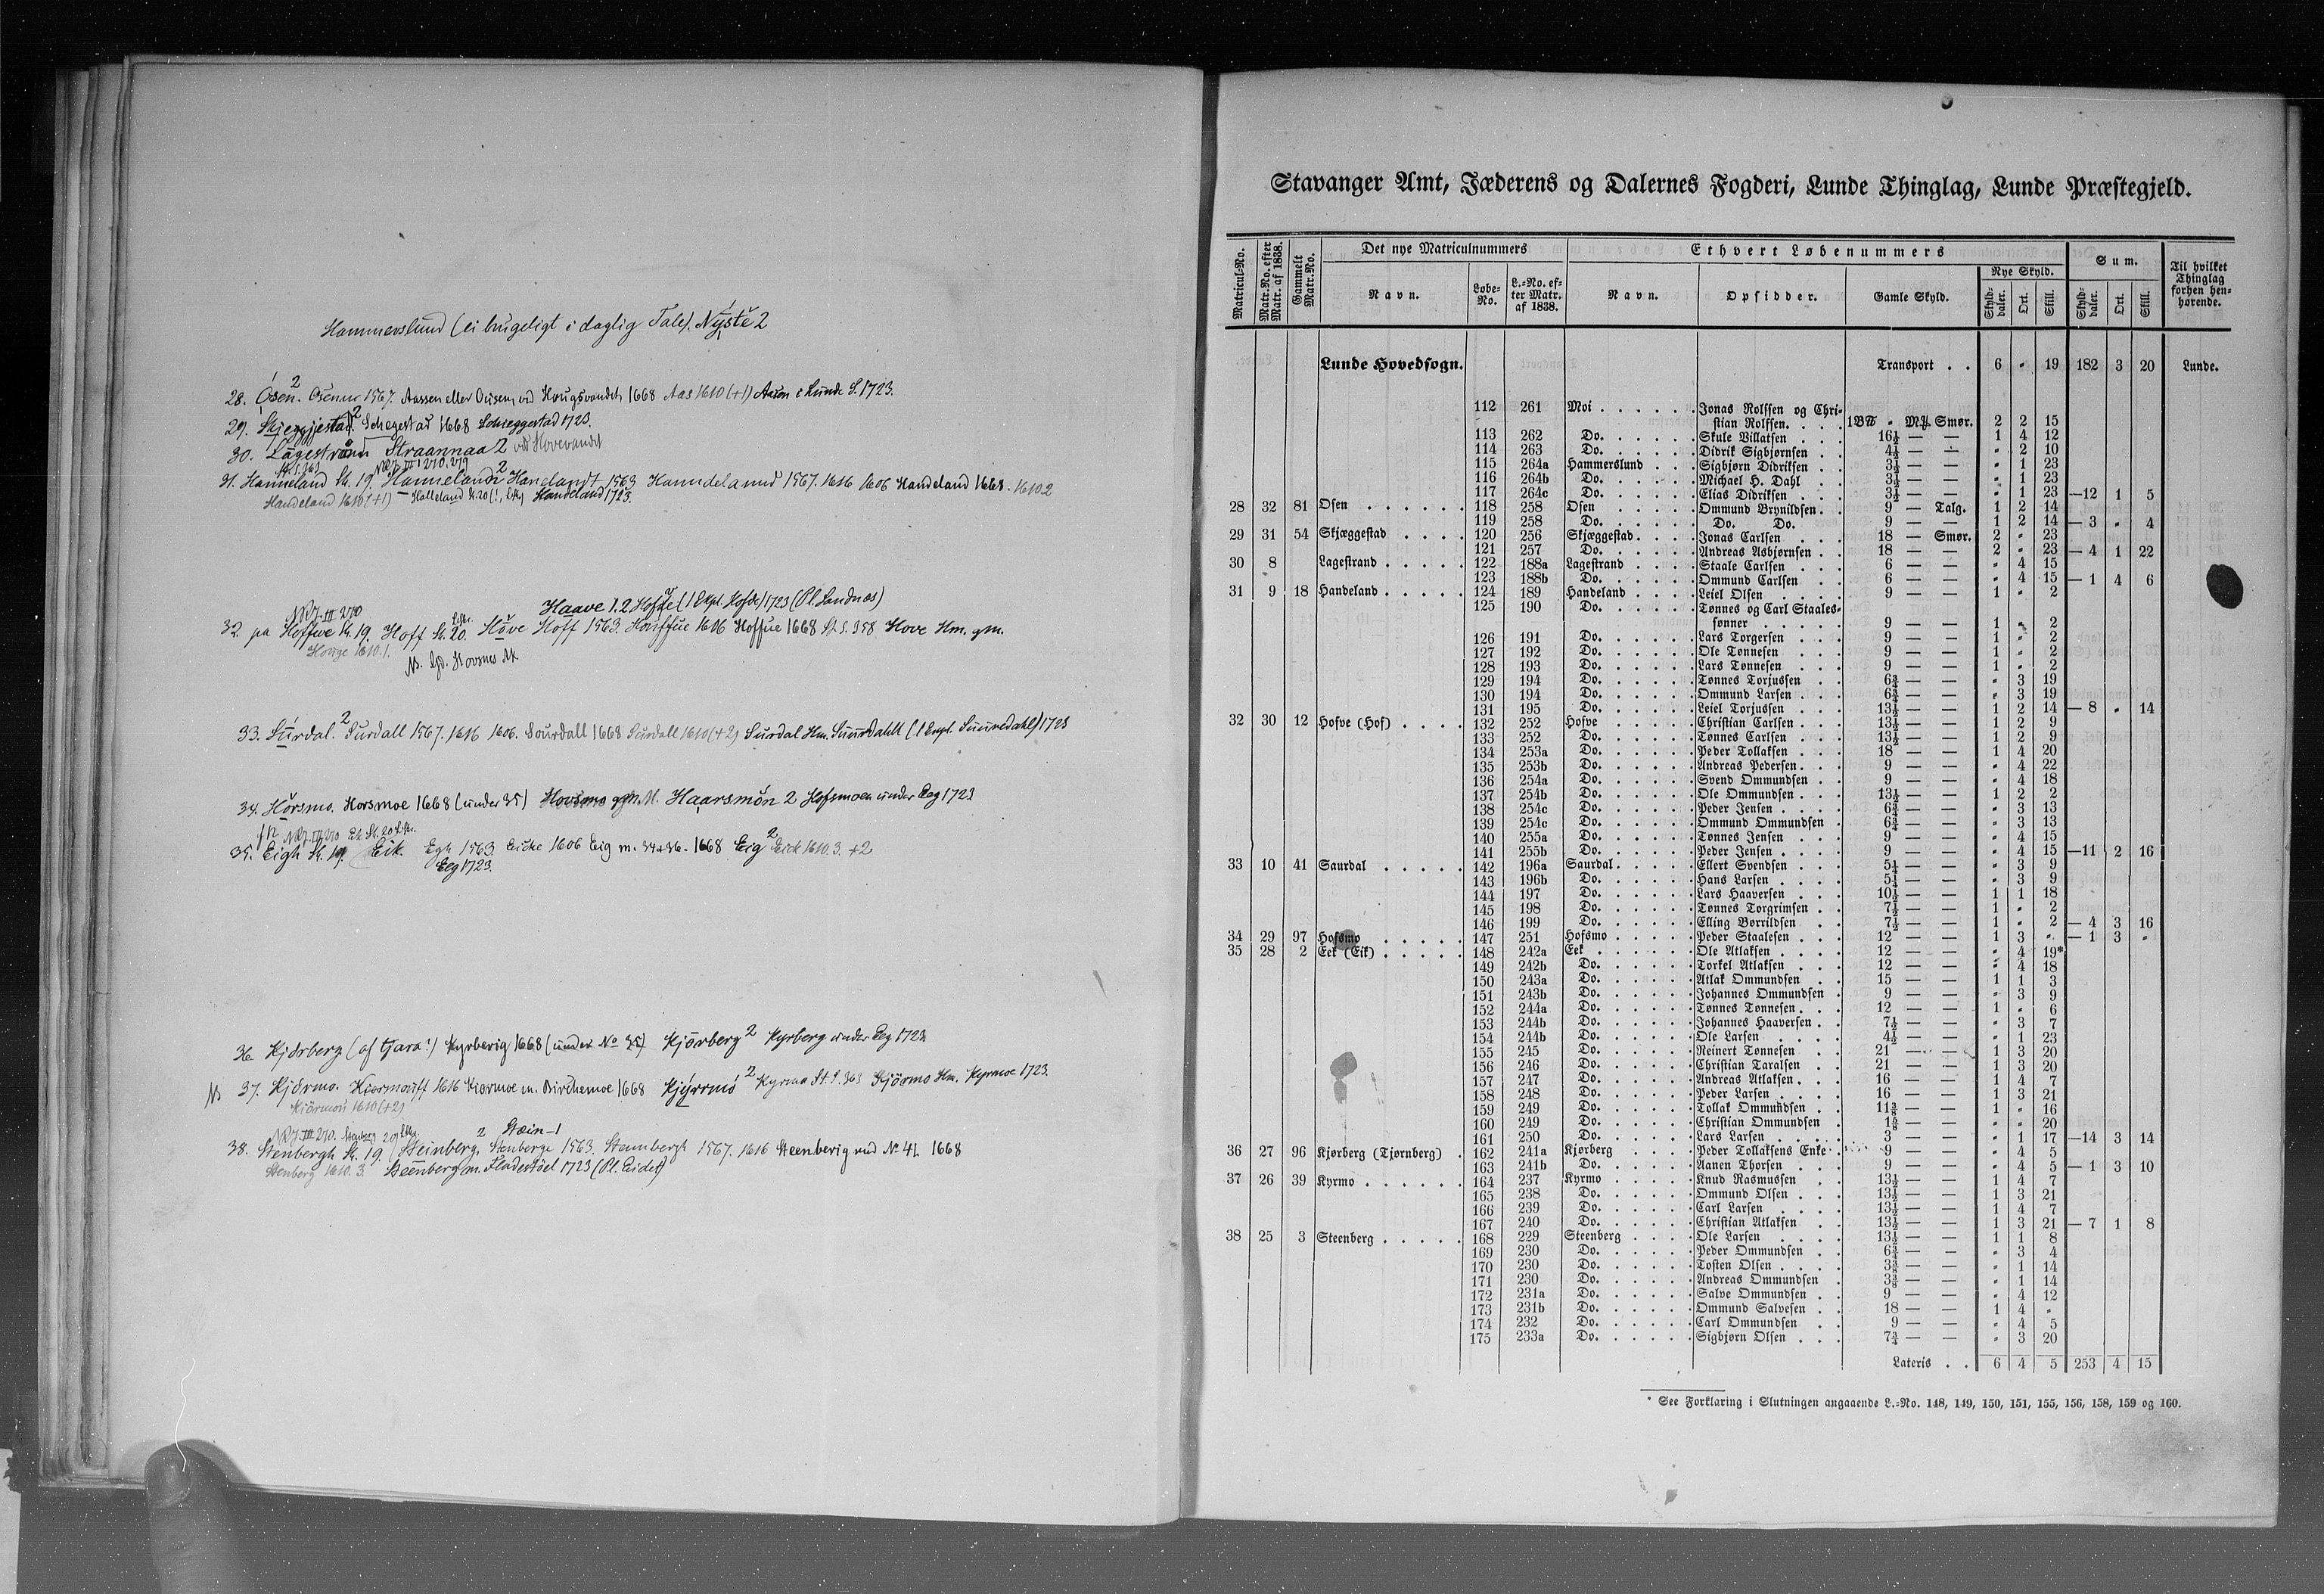 Hammerslund (ei brugeligt i daglig Tale). Nýstě 2
28. Ósen. 2 Osenne 1567. Aassen eller Ousen, ved Hougsvandet 1668 Aas 1610 (+1) Aasen i Lunde S. 1723.
29. Skjeggjestad. 2 Schegestad 1668 Schieggestad 1723.
30. Lagestrånn Straannaa 2 ved Hovevandet
St. S. 363 NRJ. III 270. 279
31. Hanneland St. 19. Hanneland 2 Hanelandt 1563 Hanndeland 1567. 1616 1606 Handeland 1668. 1610 2
Handeland 1610 (+1) Halleland St. 20 (!, Lhy Handeland 1723.
Haave 1.2 Hoffve (1 Expl. Hofde) 1723 (Pl. Sandnæs)
NRJ. III 270
32. pa Hoffwe St. 19. Hoff St. 20. Hŏve Hoff 1563. Houffue 1606 Hoffue 1668 St. S. 358 Hove Hm. gm.
Houge 1610. 1.
NB. Gd. Hovsnes M.
33. Sūrdal. 2 Surdall 1567. 1616 1606. Sourdall 1668 Surdall 1610 (+2) Surdal Hm. Suurdahll (1 Expl. Suuredahl) 1723
34. Hŏrsmo. Horsmoe 1668 (under 35) Hovsmo gm. M. Haarsmŏn 2 Hofsmoen under Eeg 1723
NRJ. III 270 Eik St. 20
35. Eigh St. 19. Eik. Egh 1563 Eicke 1606 Eig m. 34+36. 1668 Eig 2 Eick 1610. 3. +2
Eeg 1723.
36 Kjörberg (af tjara?) Kyrberig 1668 (under No 35) Kjörberg 2 Kyrberg under Eeg 1723
NB 37. Kjörmo. Kiormouff 1616 Kiørmoe m. Birchemoe 1668 Kjýrrmó 2 Kyrmo St. S. 363 Kjörmo Hm. Kyrmoe 1723.
Kiörmou 1610 (+2)
NRJ. III 270. Stenberg 20 Stæin-1
38. Stenbergh St. 19. Steinberg. 2 Stenberge 1563. Stennbergh 1567. 1616 Steenberig ved No 41. 1668
Stenberg 1610. 3. Steenberg m. Fladestöel 1723 (Pl. Eidet)
Stavanger Amt, Jæderens og Dalernes Fogderi, Lunde Thinglag, Lunde Præstegjeld.
Matricul-No. Matr.No. efter Matr. af 1838. Gammelt Matr.No. Det nye Matriculnummers Ethvert Løbenummers Sum. Til hvilket Thinglag forhen henhørende.
Navn. Løbe-No. L.-No. efter Matr. af 1838. Navn. Opsidder. Gamle Skyld. Nye Skyld. Skylddaler. Ort. Skill. Skylddaler. Ort. Skill.
Lunde Hovedsogn. Transport . . 6 " 19 182 3 20 Lunde.
112 261 Moi . . . . . . Jonas Rolfsen og Chri-
stian Rolfsen. . . . 1BP " Mp Smør. 2 2 15
113 262 Do. . . . . . Skule Villatsen . . . 16½ — — 1 4 12
114 263 Do. . . . . . Didrik Sigbjørnsen . . 4½ — — " 2 10
115 264a Hammerslund . . . Sigbjørn Didriksen . . 3½ — — " 1 23
116 264b Do. . . . . . Michael H. Dahl . . 3½ — — " 1 23
117 264c Do. . . . . . Elias Didriksen . . . 3½ — — " 1 23 —12 1 5
28 32 81 Osen . . . . . . 118 258 Osen . . . . . Ommund Brynildsen . . 9 — Talg. 1 2 14
119 258 Do. . . . . . Do. Do. 9 — — 1 2 14 — 3 " 4
29 31 54 Skjæggestad . . . . 120 256 Skjæggestad . . . . Jonas Carlsen . . . 18 — Smør. 2 " 23
121 257 Do. . . . . . Andreas Asbjørnsen . . 18 — — 2 " 23 — 4 1 22
30 8 Lagestrand . . . . . 122 188a Lagestrand . . . . Staale Carlsen . . . 6 — — " 4 15
123 188b Do. . . . . . Ommund Carlsen . . 6 — — " 4 15 — 1 4 6
31 9 18 Handeland . . . . . 124 189 Handeland . . . . Leiel Olsen . . . . 9 — — 1 " 2
125 190 Do. . . . . . Tønnes og Carl Staales-
sønner . . . . . 9 — — 1 " 2
126 191 Do. . . . . . Lars Torgersen . . . 9 — — 1 " 2
127 192 Do. . . . . . Ole Tønnesen . . . 9 — — 1 " 2
128 193 Do. . . . . . Lars Tønnesen . . . 9 — — 1 " 2
129 194 Do. . . . . . Tønnes Torjussen . . 6¾ — — " 3 19
130 194 Do. . . . . . Ommund Larsen . . . 6¾ — — " 3 19
131 195 Do. . . . . . Leiel Torjussen . . . 13½ — — 1 2 14 — 8 " 14
32 30 12 Hofve (Hof) . . . . 132 252 Hofve . . . . . Christian Carlsen . . . 13½ — — 1 2 9
133 252 Do. . . . . . Tønnes Carlsen . . . 13½ — — 1 2 9
134 253a Do. . . . . . Peder Tollaksen . . . 18 — — 1 4 20
135 253b Do. . . . . . Andreas Pedersen . . . 9 — — " 4 22
136 254a Do. . . . . . Svend Ommundsen . . 9 — — " 4 18
137 254b Do. . . . . . Ole Ommundsen . . . 13½ — — 1 2 2
138 254c Do. . . . . . Peder Jensen . . . . 6¾ — — " 3 13
139 254c Do. . . . . . Ommund Ommundsen . 6¾ — — " 3 13
140 255a Do. . . . . . Tønnes Jensen . . . 9 — — " 4 15
141 255b Do. . . . . . Peder Jensen . . . . 9 — — " 4 15 —11 2 16
33 10 41 Saurdal . . . . . 142 196a Saurdal . . . . . Ellert Svendsen . . . 5¼ — — " 3 9
143 196b Do. . . . . . Hans Larsen . . . . 5¼ — — " 3 9
144 197 Do. . . . . . Lars Haaversen . . . 10½ — — 1 1 18
145 198 Do. . . . . . Tønnes Torgrimsen . . 7½ — — 1 " 2
146 199 Do. . . . . . Elling Børrildsen . . 7½ — — 1 " 2 — 4 3 16
34 29 97 Hofsmo . . . . . 147 251 Hofsmo . . . . . Peder Staalesen . . . 12 — — 1 3 " — 1 3 "
35 28 2 Eek (Eik) . . . . . 148 242a Eek . . . . . . Ole Atlaksen . . . . 12 — — " 4 19*
149 242b Do. . . . . . Torkel Atlaksen . . . 12 — — " 4 18
150 243a Do. . . . . . Atlak Ommundsen . . 15 — — 1 1 3
151 243b Do. . . . . . Johannes Ommundsen . 9 — — " 3 9
152 244a Do. . . . . . Tønnes Tønnesen . . . 12 — — 1 " 6
153 244b Do. . . . . . Johannes Haaversen . . 7½ — — " 3 7
154 244b Do. . . . . . Ole Larsen . . . . 4½ — — " 1 23
155 245 Do. . . . . . Reinert Tønnesen . . 21 — — 1 3 20
156 246 Do. . . . . . Christian Taralsen . . 21 — — 1 3 20
157 247 Do. . . . . . Andreas Atlaksen . . . 16 — — 1 4 7
158 248 Do. . . . . . Peder Larsen . . . . 16 — — 1 3 21
159 249 Do. . . . . . Tollak Ommundsen . . 11⅜ — — 1 " 16
160 249 Do. . . . . . Christian Ommundsen . 1⅝ — — " " 20
161 250 Do. . . . . . Lars Larsen . . . . 3 — — " 1 17 —14 3 14
36 27 96 Kjørberg (Tjørnberg) . 162 241a Kjørberg . . . . Peder Tollaksens Enke . 9 — — " 4 5
163 241b Do. . . . . . Aanen Thorsen . . . 9 — — " 4 5 — 1 3 10
37 26 39 Kyrmo . . . . . . 164 237 Kyrmo . . . . . Knud Rasmussen . . 13½ — — 1 4 7
165 238 Do. . . . . . Ommund Olsen . . . 13½ — — 1 3 21
166 239 Do. . . . . . Carl Larsen . . . . 13½ — — 1 4 7
167 240 Do. . . . . . Christian Atlaksen . . 13½ — — 1 3 21 — 7 1 8
38 25 3 Steenberg . . . . . 168 229 Steenberg . . . . Ole Larsen . . . . 13½ — — 1 1 8
169 230 Do. . . . . . Peder Ommundsen . . 6¾ — — " 3 4
170 230 Do. . . . . . Tosten Olsen . . . . 3⅜ — — " 1 14
171 230 Do. . . . . . Andreas Ommundsen . 3⅜ — — " 1 14
172 231a Do. . . . . . Salve Ommundsen . . 9 — — " 4 12
173 231b Do. . . . . . Ommund Salvesen . . 18 — — 1 4 "
174 232 Do. . . . . . Carl Ommundsen . . 9 — — " 4 5
175 233a Do. . . . . . Sigbjørn Olsen . . . 7¾ — — " 3 20
Lateris . . 6 4 5 253 4 15
* See Forklaring i Slutningen angaaende L.-No. 148, 149, 150, 151, 155, 156, 158, 159 og 160.